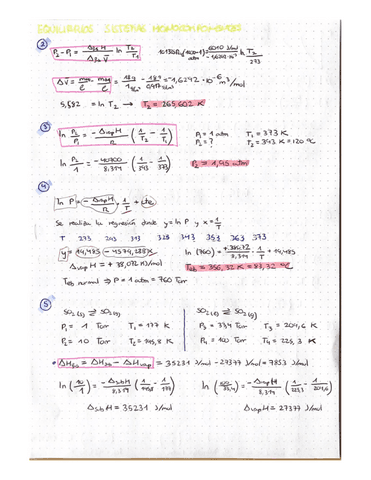 EQUILIBRIOS SISTEMAS MONOCOMPONENTES
②
P₂ - P₁ = ΔfusH / ΔfusV ln T₂/T₁
ΔV̄ = = 18g/1 - 18g/0,917 = -1,6242 · 10⁻⁶ m³/mol
5,582 = ln T₂ → T₂ = 265,602 K
③
ln P₂/P₁ = -ΔvapH/R (1/T₂ - 1/T₁) P₁ = 1 atm T₁ = 373 K
P₂ = ? T₂ = 393 K = 120 ºC
ln P₂/1 = -40700/8,314 (1/393 - 1/373) P₂ = 1,95 atm
④
ln P = -ΔvapH/R · 1/T + cte
Se realiza la regresión donde y = ln P y x = 1/T
T 273 293 313 328 343 353 363 373
y = 14,483 - 4579,283 x ln (760) = · 1/T + 14,483
ΔvapH = + 38,072 KJ/mol Teb = 356,32 K = 83,32 ºC
Teb normal ⇒ P = 1 atm = 760 Torr
⑤
SO₂ (s) ⇄ SO₂ (g) SO₂ (l) ⇄ SO₂ (g)
P₁ = 1 Torr T₁ = 177 K P₃ = 33,4 Torr T₃ = 209,6 K
P₂ = 10 Torr T₂ = 195,8 K P₄ = 100 Torr T₄ = 225,3 K
• ΔHfus = ΔHsub - ΔHvap = 35231 J/mol - 27377 J/mol = 7853 J/mol
ln (10/1) = -ΔsubH/8,314 (1/195,8 - 1/177) ln (100/33,4) = -ΔvapH/8,314 (1/225,3 - 1/209,6)
ΔsubH = 35231 J/mol ΔvapH = 27377 J/mol